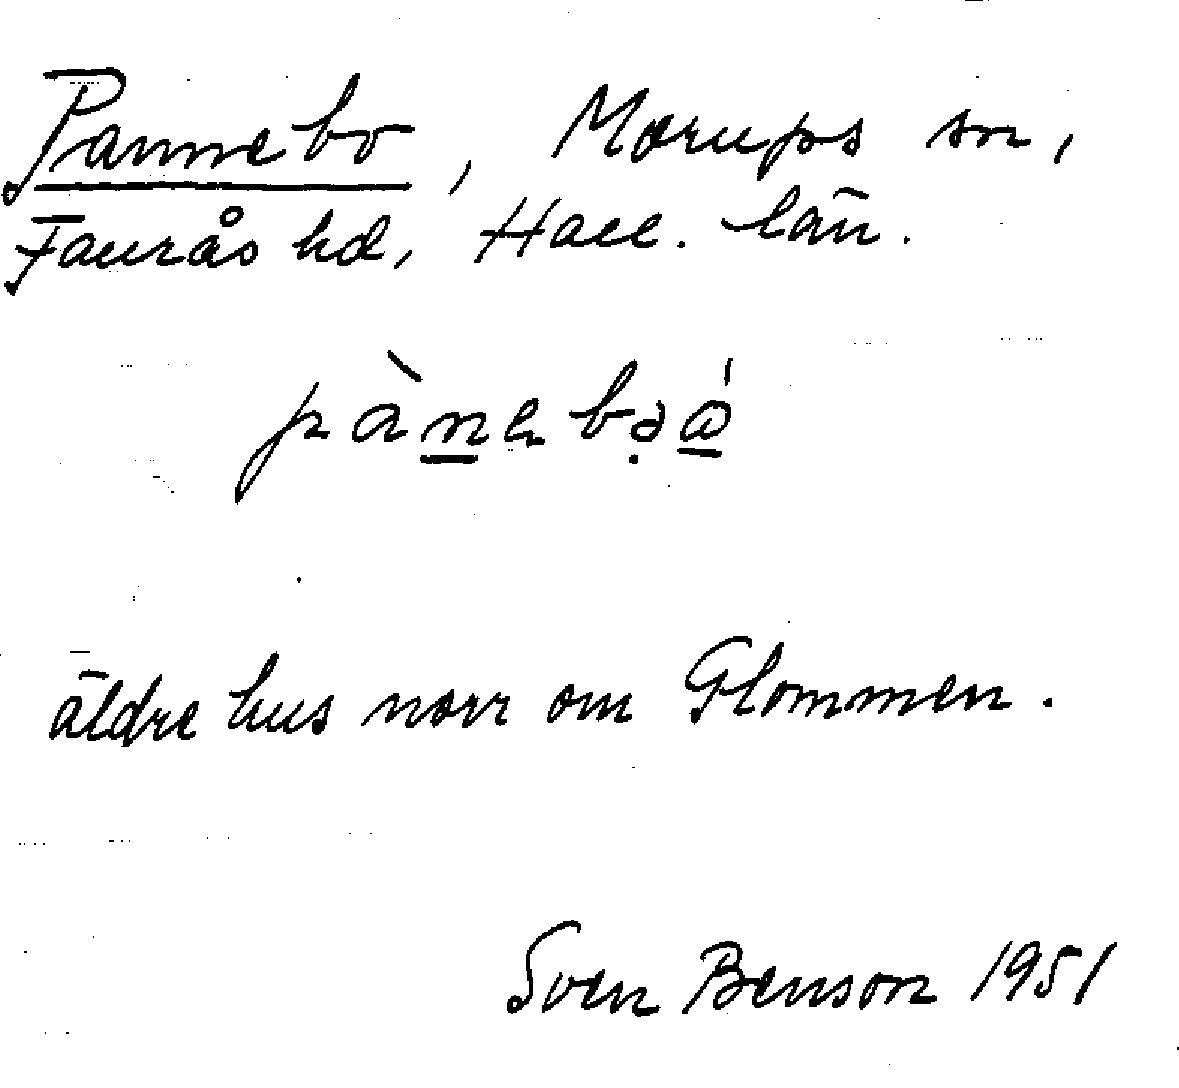 Pannebo, Morups sn,
Faurås hd, Hall. län.
äldre hus norr om Glommen.
Sven Benson 1951